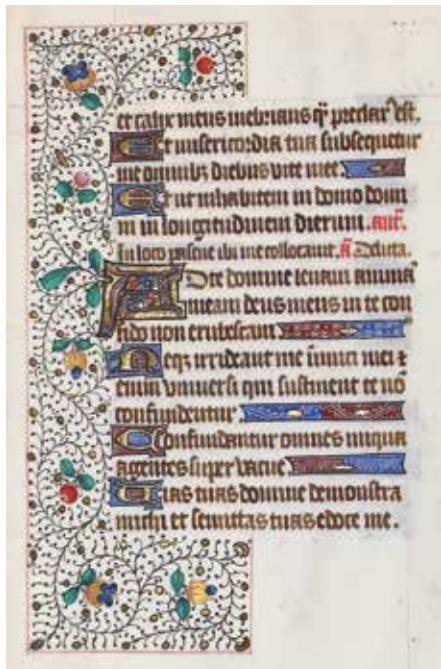 et calix meus inebrians q̃ preclar' est.
Et misericordia tua subsequetur
me omnibz diebus vite mee
Et ut inhabitem in domo domi
ni in longitudinem dierum. ant.
In loco pascue ibi me collocavit. a Delicta.
Ad te domine levavi animã
meam deus meus in te con
fido non erubescam
Neqz irrideant me inimici mei et
enim universi qui sustinent te nõ
confundentur
Confundantur omnes iniqua
agentes super vacue
Vias tuas domine demonstra
michi et semittas tuas edoce me.